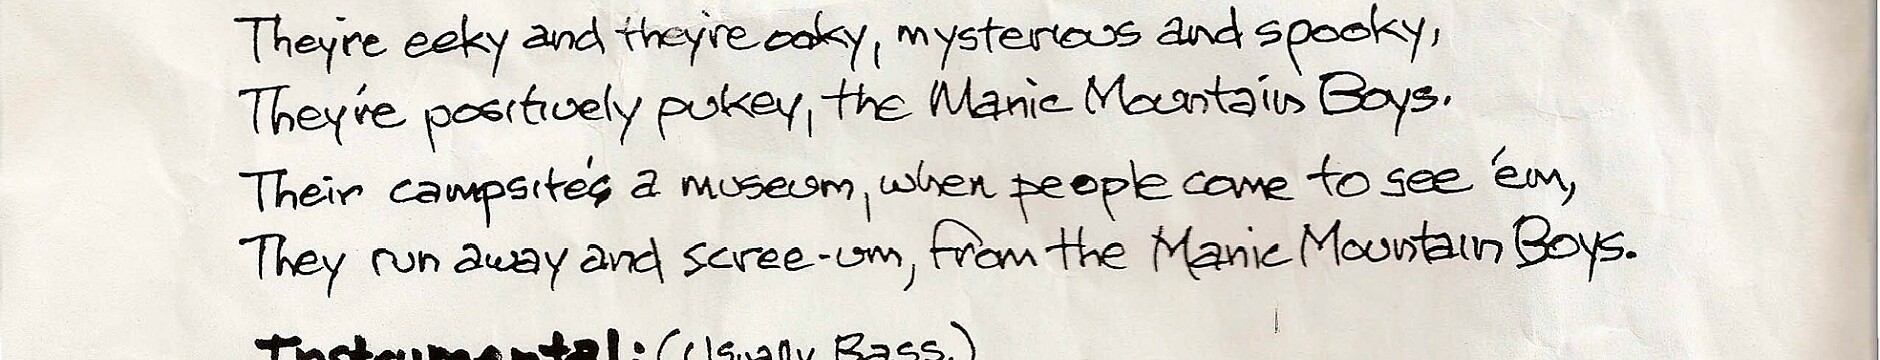 They're eeky and they're ooky, mysterious and spooky,
They're positively pukey, the Manic Mountain Boys.
Their campsite's a museum, when people come to see 'em,
They run away and scree-um, from the Manic Mountain Boys.
Instrumental: (Usually Bass.)